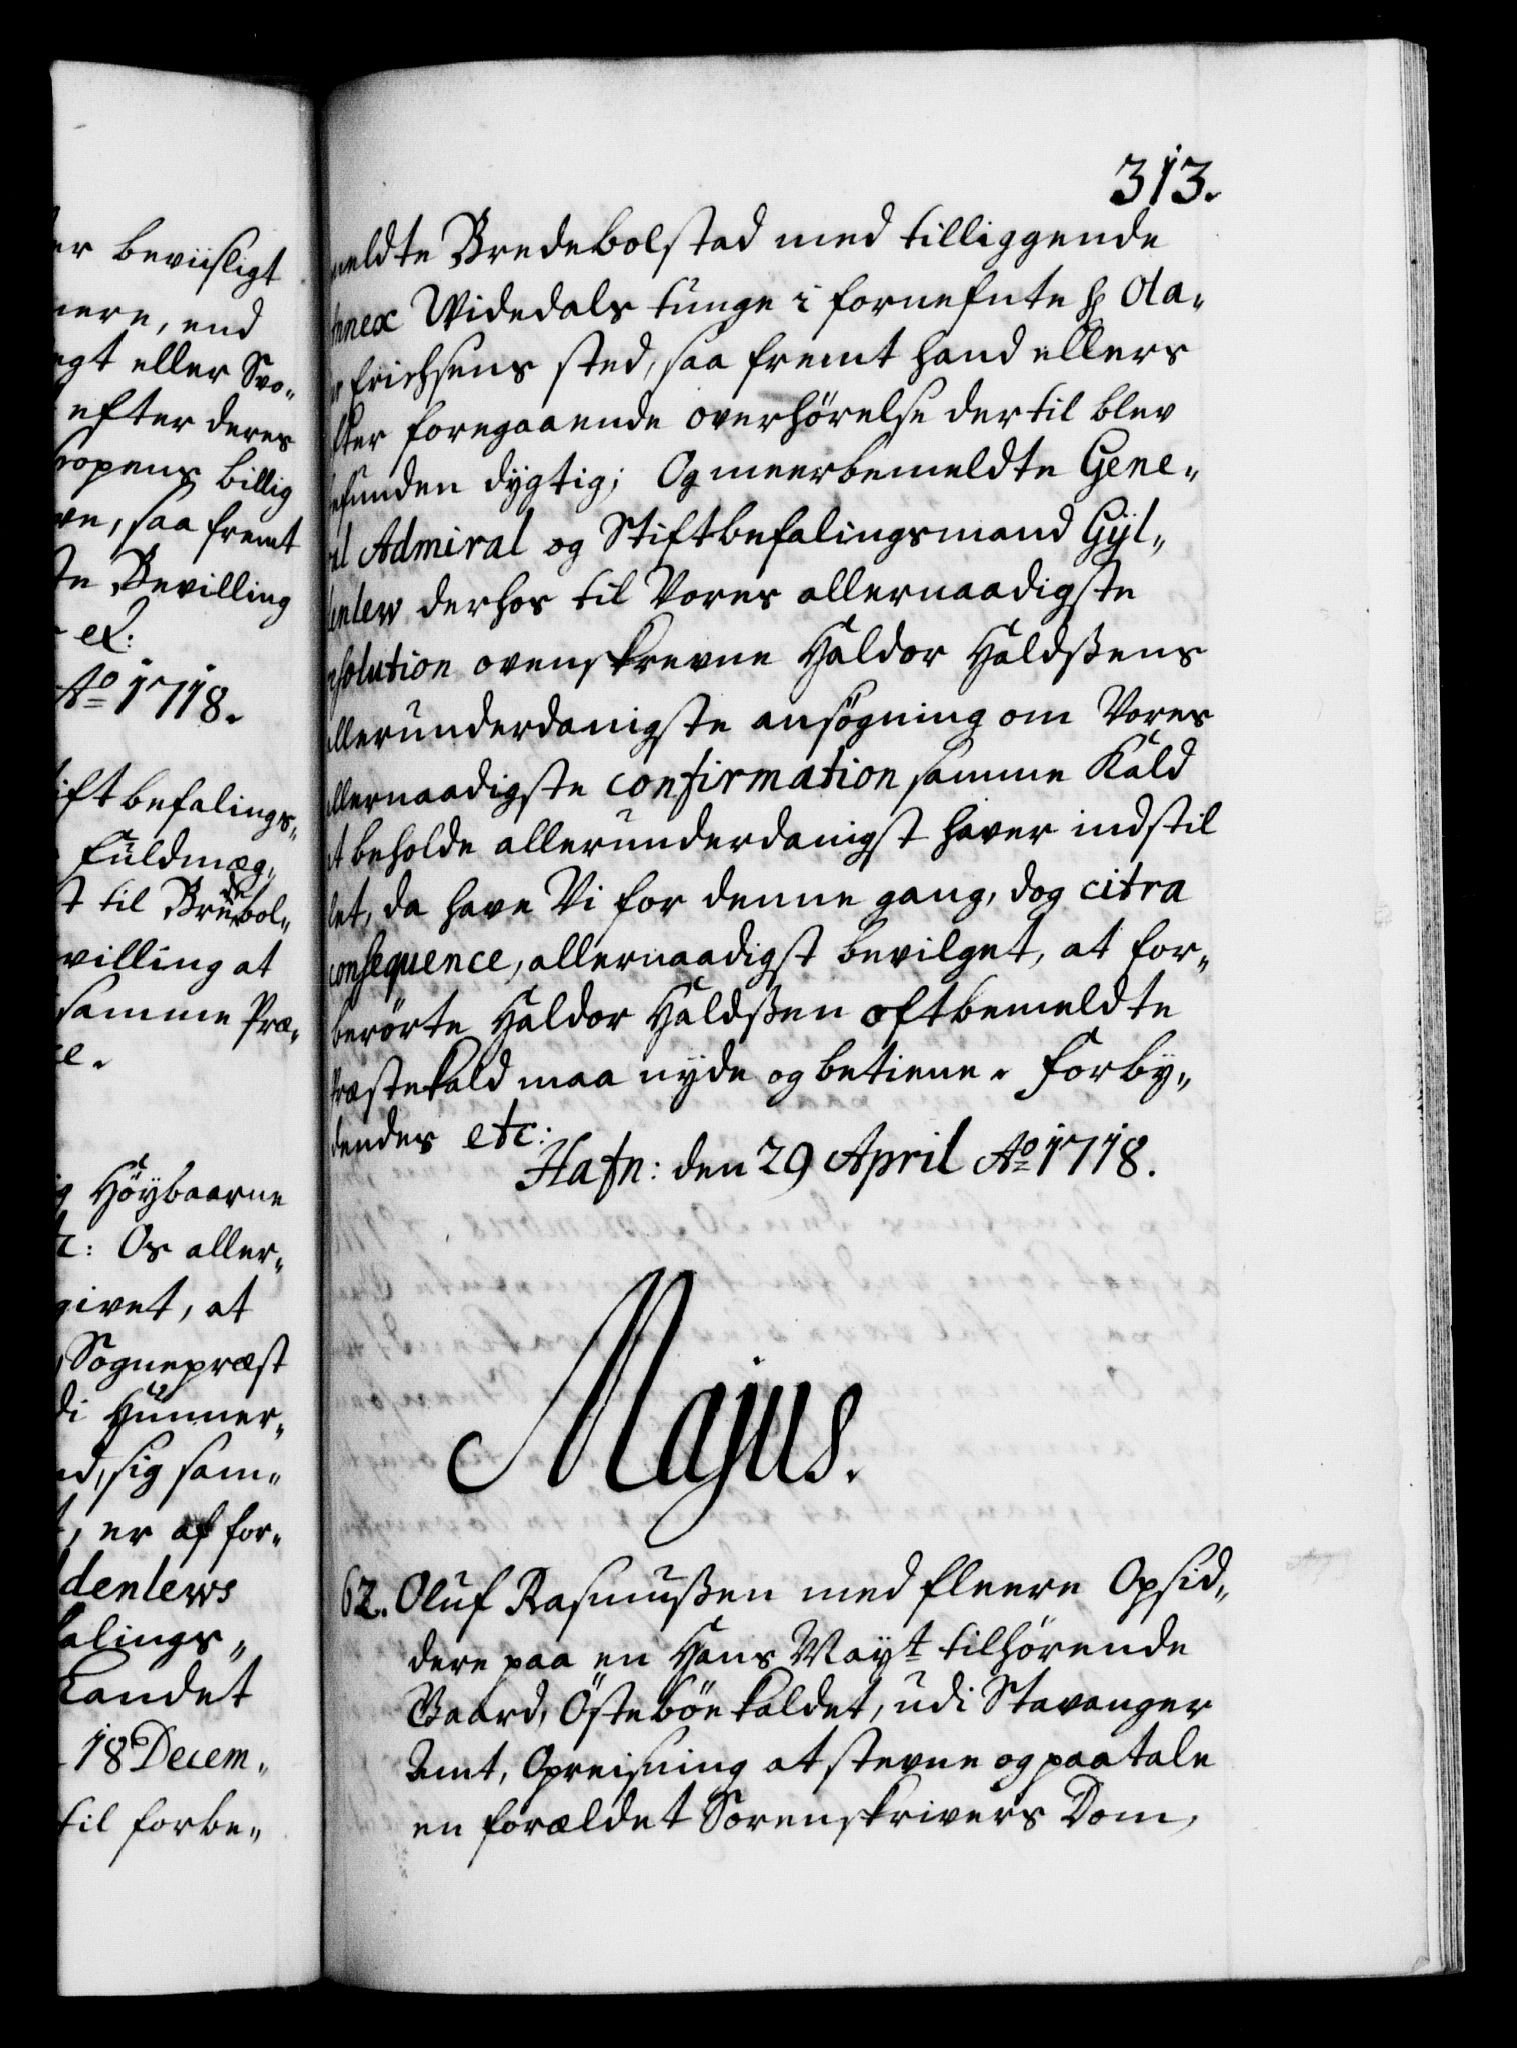 er beviisligt
nere, end
egt eller Svo„
efter deres
ropens billig
ve, saa fremt
te Bevilling
Ao 1718.
iftbefalings„
Fuldmæg„
t til Bredebol„
villing at
samme Præ„
e.
Höybaarne
: Os aller„
givet, at
Sognepræst
di Hunner„
d, sig sam„
, er af for„
denlews
alings„
Landet
18 Decem„
til forbe„
313.
meldte Bredebolstad med tilliggende
Annex Widedals tunge i fornefnte Hr Ola„
Erichsens sted, saa fremt hand ellers
fter foregaaende overhörelse dertil blev
efunden dygtig; Og meerbemeldte Gene„
al Admiral og Stiftbefalingsmand Gyl„
enlew derhos til Vores allernaadigste
esolution ovenskrevne Haldor Haldssens
allerunderdanigste ansögning om Vores
allernaadigste confirmation samme Kald
at beholde allerunderdanigst haver indstil
let, da have Vi for denne gang, dog citra
consequence, allernaadigst bevilget, at for„
berörte Haldor Haldssen oftbemeldte
Præstekald maa nyde og betiene. Forby„
dendes etc:
Hafn: den 29 April Ao 1718.
Majus.
62. Oluf Rasmussen med fleere Opsid„
dere paa en Hans Mayt tilhörende
Gaard, Östeböe kaldet, udi Stavanger
Amt, Opreisning at stevne og paatale
en forældet Sorenskrivers Dom,